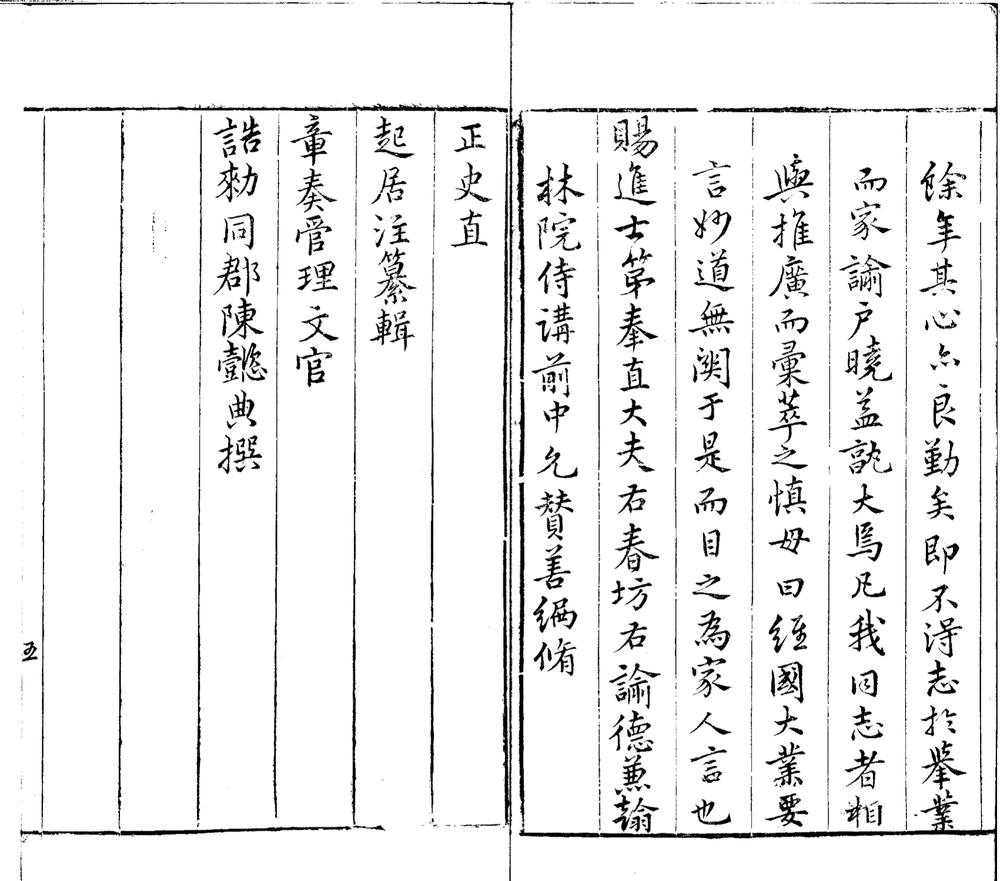 餘年其心亦良勤矣即不得志於舉業
而家諭戶曉益孰大焉凡我同志者相
與推廣而彙萃之慎毋曰經國大業要
言妙道無関于是而目之為家人言也
賜進士第奉直大夫右春坊右諭德兼翰
林院侍講前中允贊善編脩
正史直
起居注纂輯
章奏管理文官
誥勑同郡陳懿典撰
五